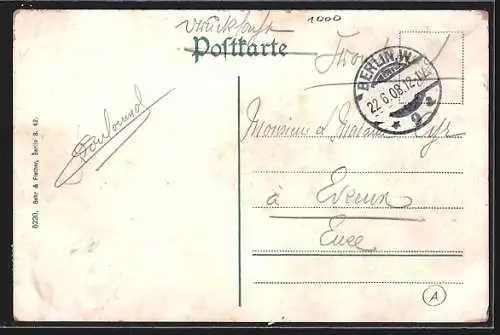 Drucksache 1000
Postkarte
BERLIN. W.
22.6.08.12-
* 9 *
Monsieur et Madame
à Evreux
Eure
6220. Behr & Fischer, Berlin S. 42.
A